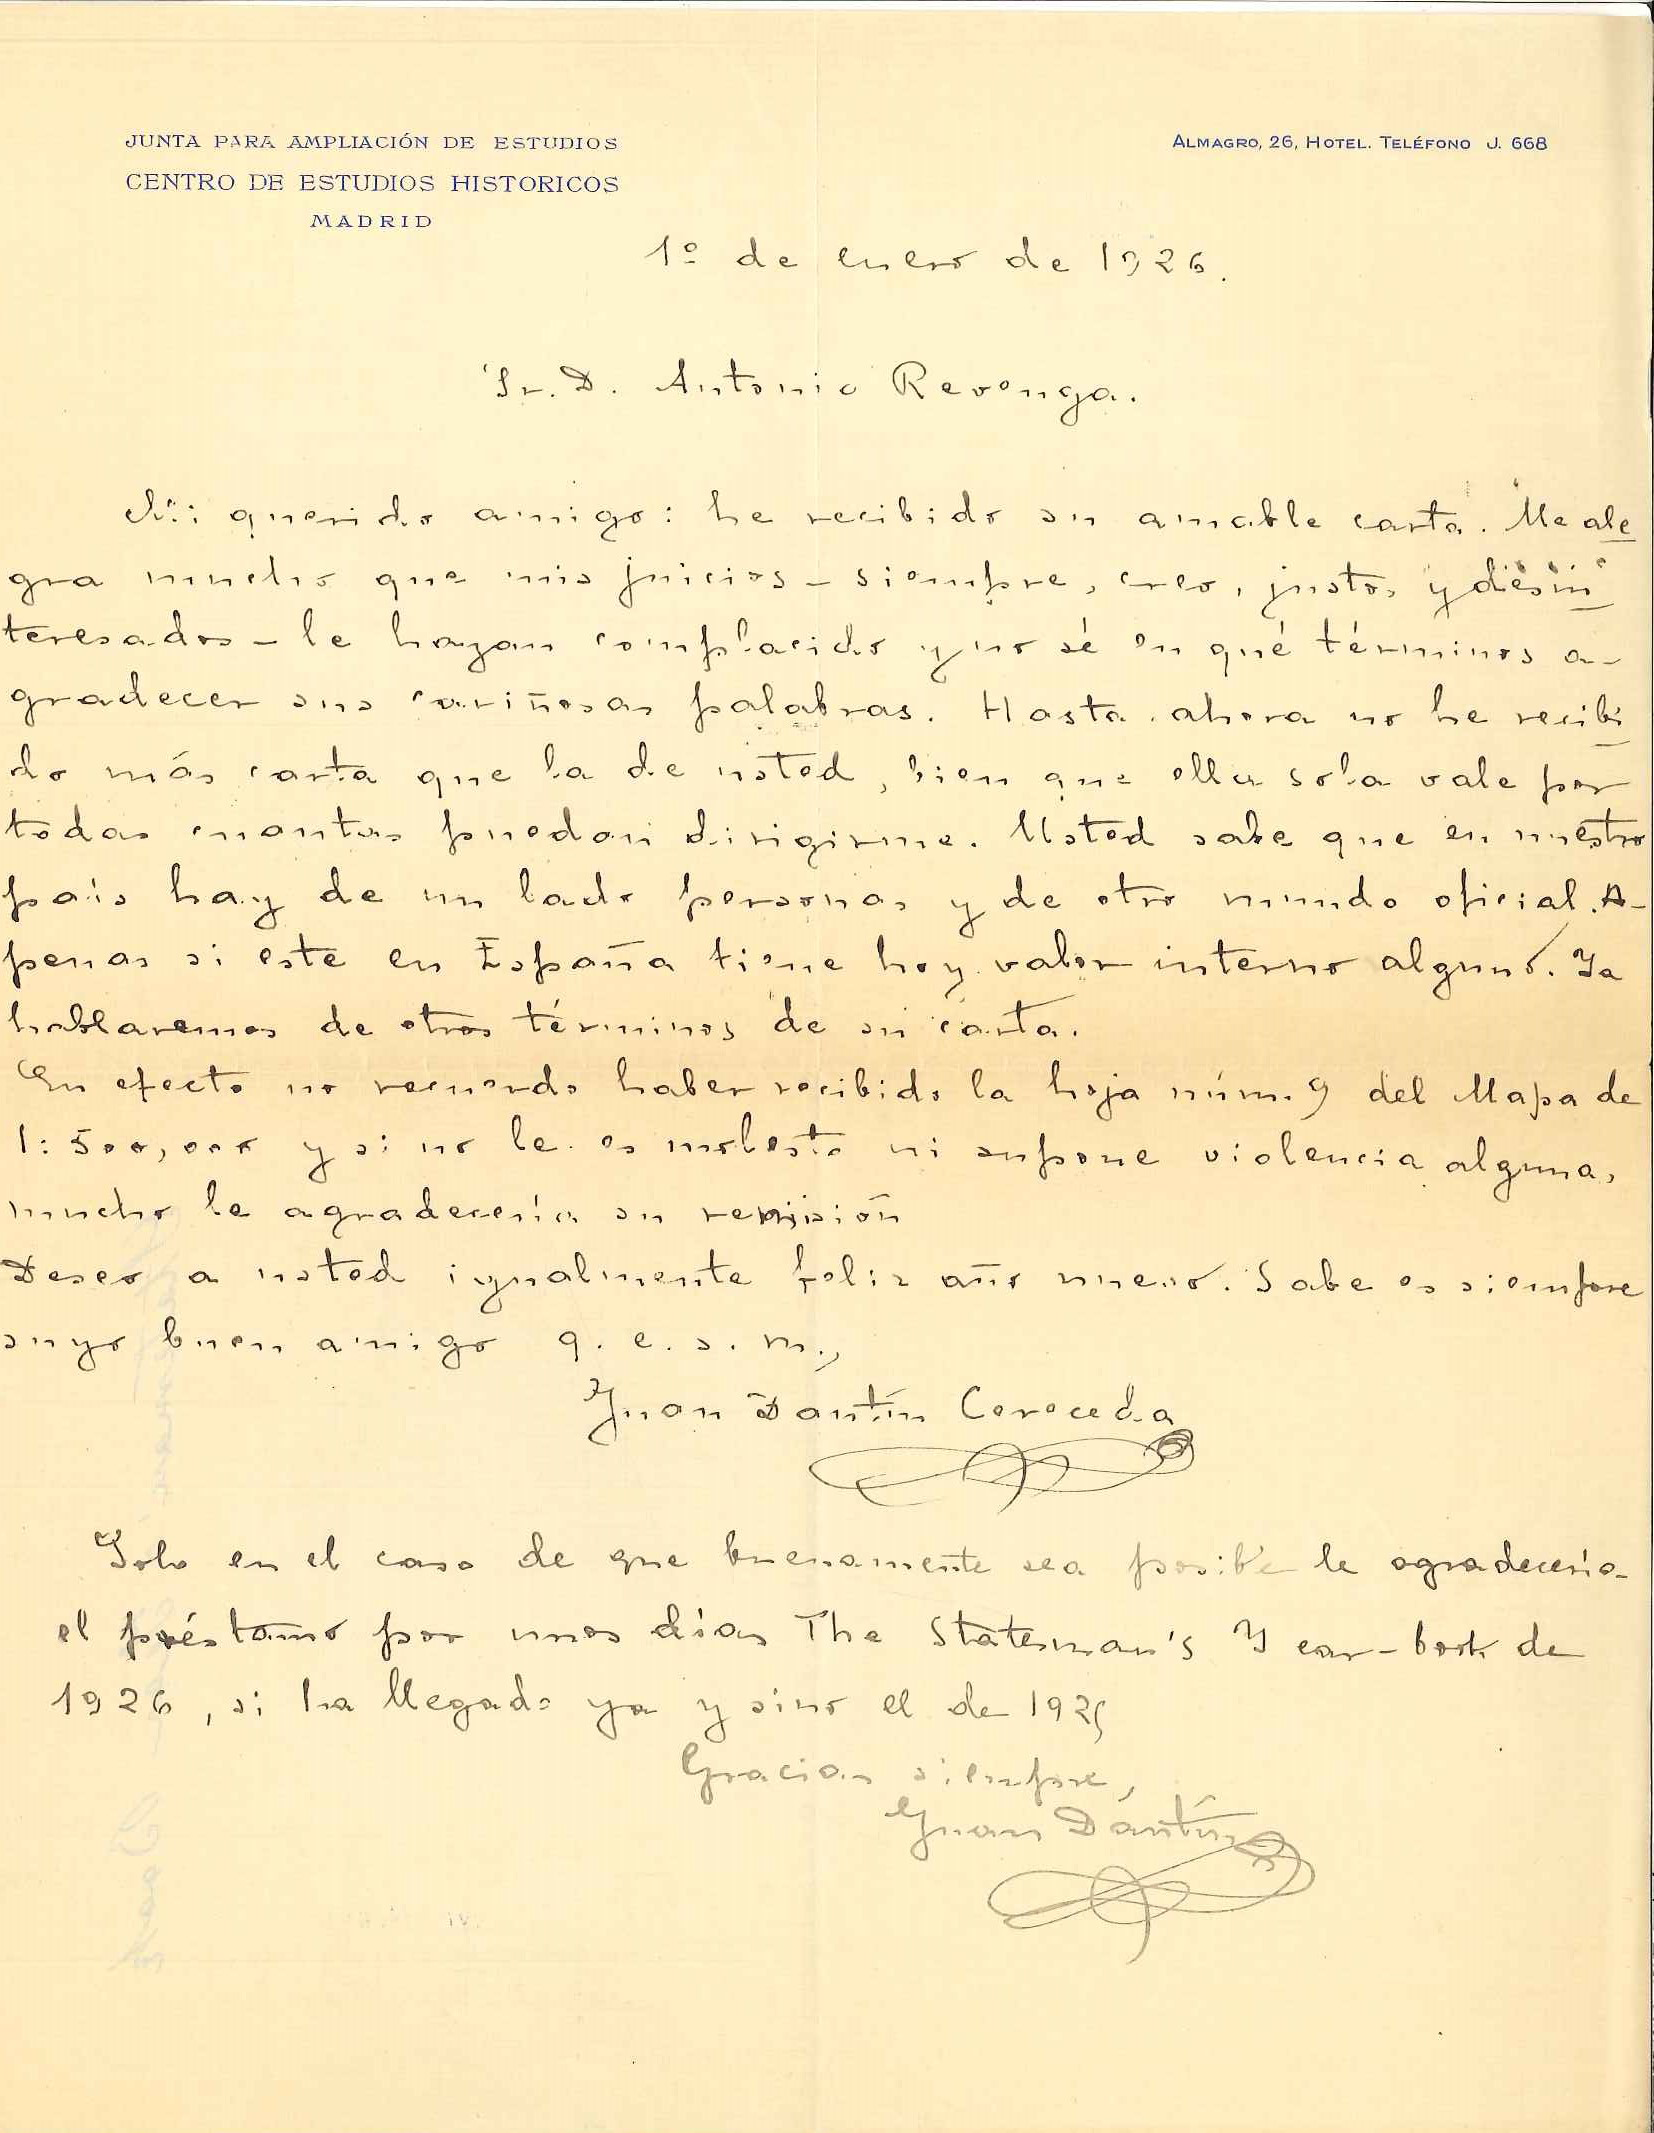 JUNTA PARA AMPLIACIÓN DE ESTUDIOS
CENTRO DE ESTUDIOS HISTORICOS
MADRID
ALMAGRO, 26, HOTEL. TELÉFONO J. 668
1º de enero de 1926.
Sr. D. Antonio Revenga.
Mi querido amigo: he recibido su amable carta. Me ale
gra mucho que mis juicios – siempre, creo, justos y desin
teresados – le hayan complacido y no sé en qué términos a-
gradecer sus cariñosas palabras. Hasta ahora no he recibi
do más carta que la de usted, bien que ella sola vale por
todas cuantas puedan dirigirme. Usted sabe que en nuestro
país hay de un lado personas y de otro mundo oficial. A-
penas si este en España tiene hoy valor interno alguno. Ya
hablaremos de otros términos de su carta.
En efecto no recuerdo haber recibido la hoja núm. 9 del Mapa de
1:500,000 y si no le es molesto ni supone violencia alguna,
mucho le agradecería su remisión
Deseo a usted igualmente feliz año nuevo. Sabe es siempre
suyo buen amigo q. e. s. m.,
Juan Dantín Cereceda
Solo en el caso de que buenamente sea posible le agradecería
el préstamo por unos días The Statesman's Year-book de
1926, si ha llegado ya y sino el de 1925
Gracias siempre,
Juan Dantín